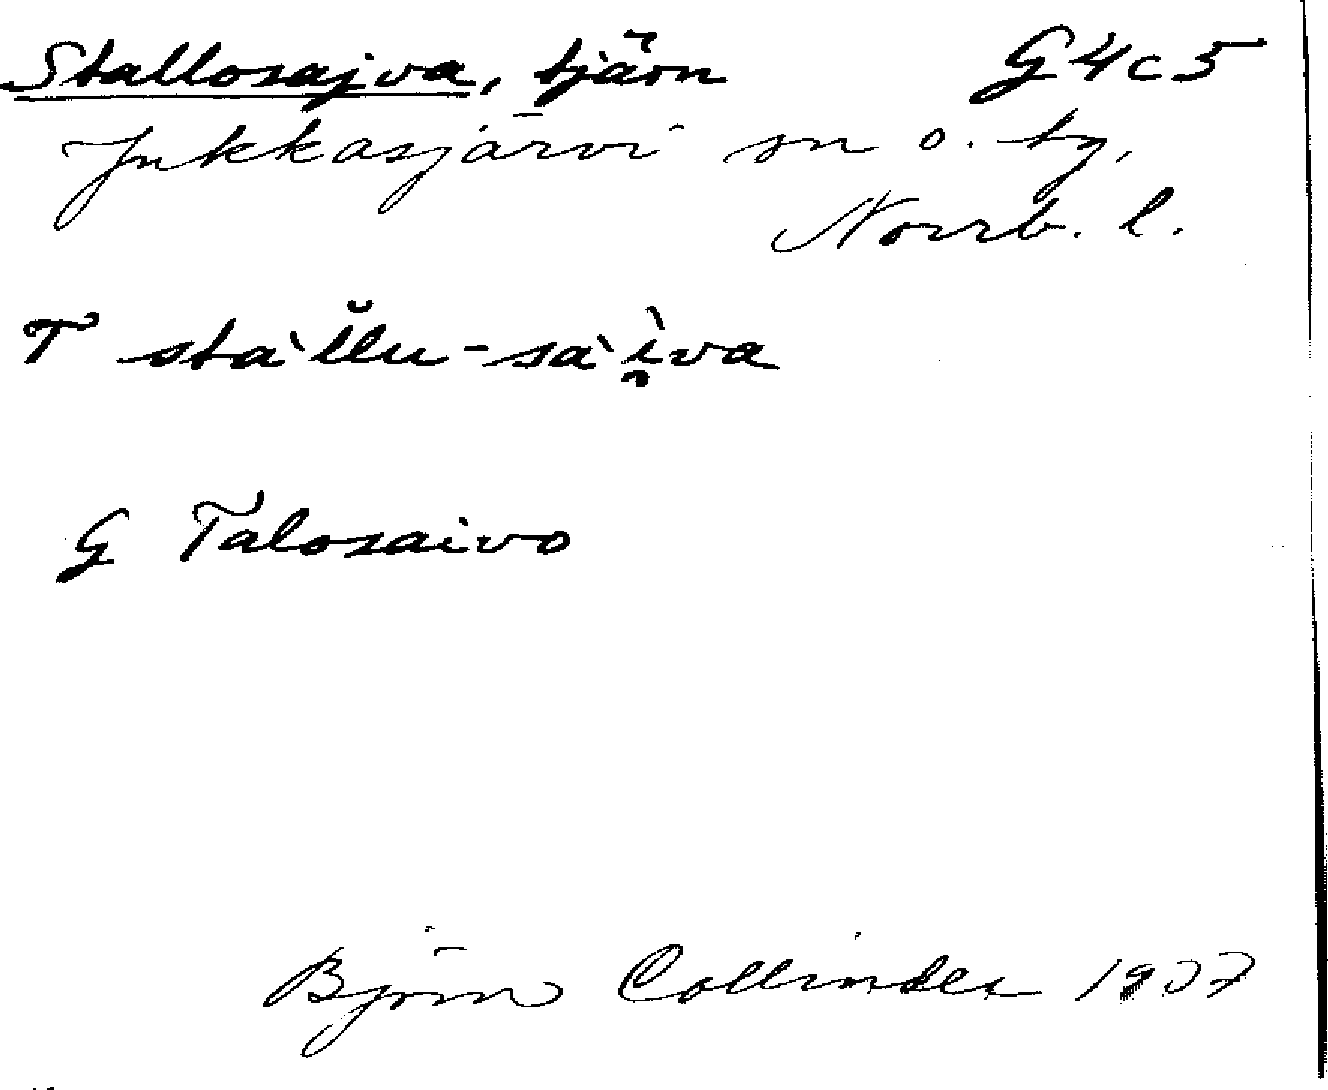 Stallosajva, tjärn G4c5
Jukkasjärvi sn o. by,
Norrb. l.
T stàl̆lu-sàì̯va
G Talosaivo
Björn Collinder 1937